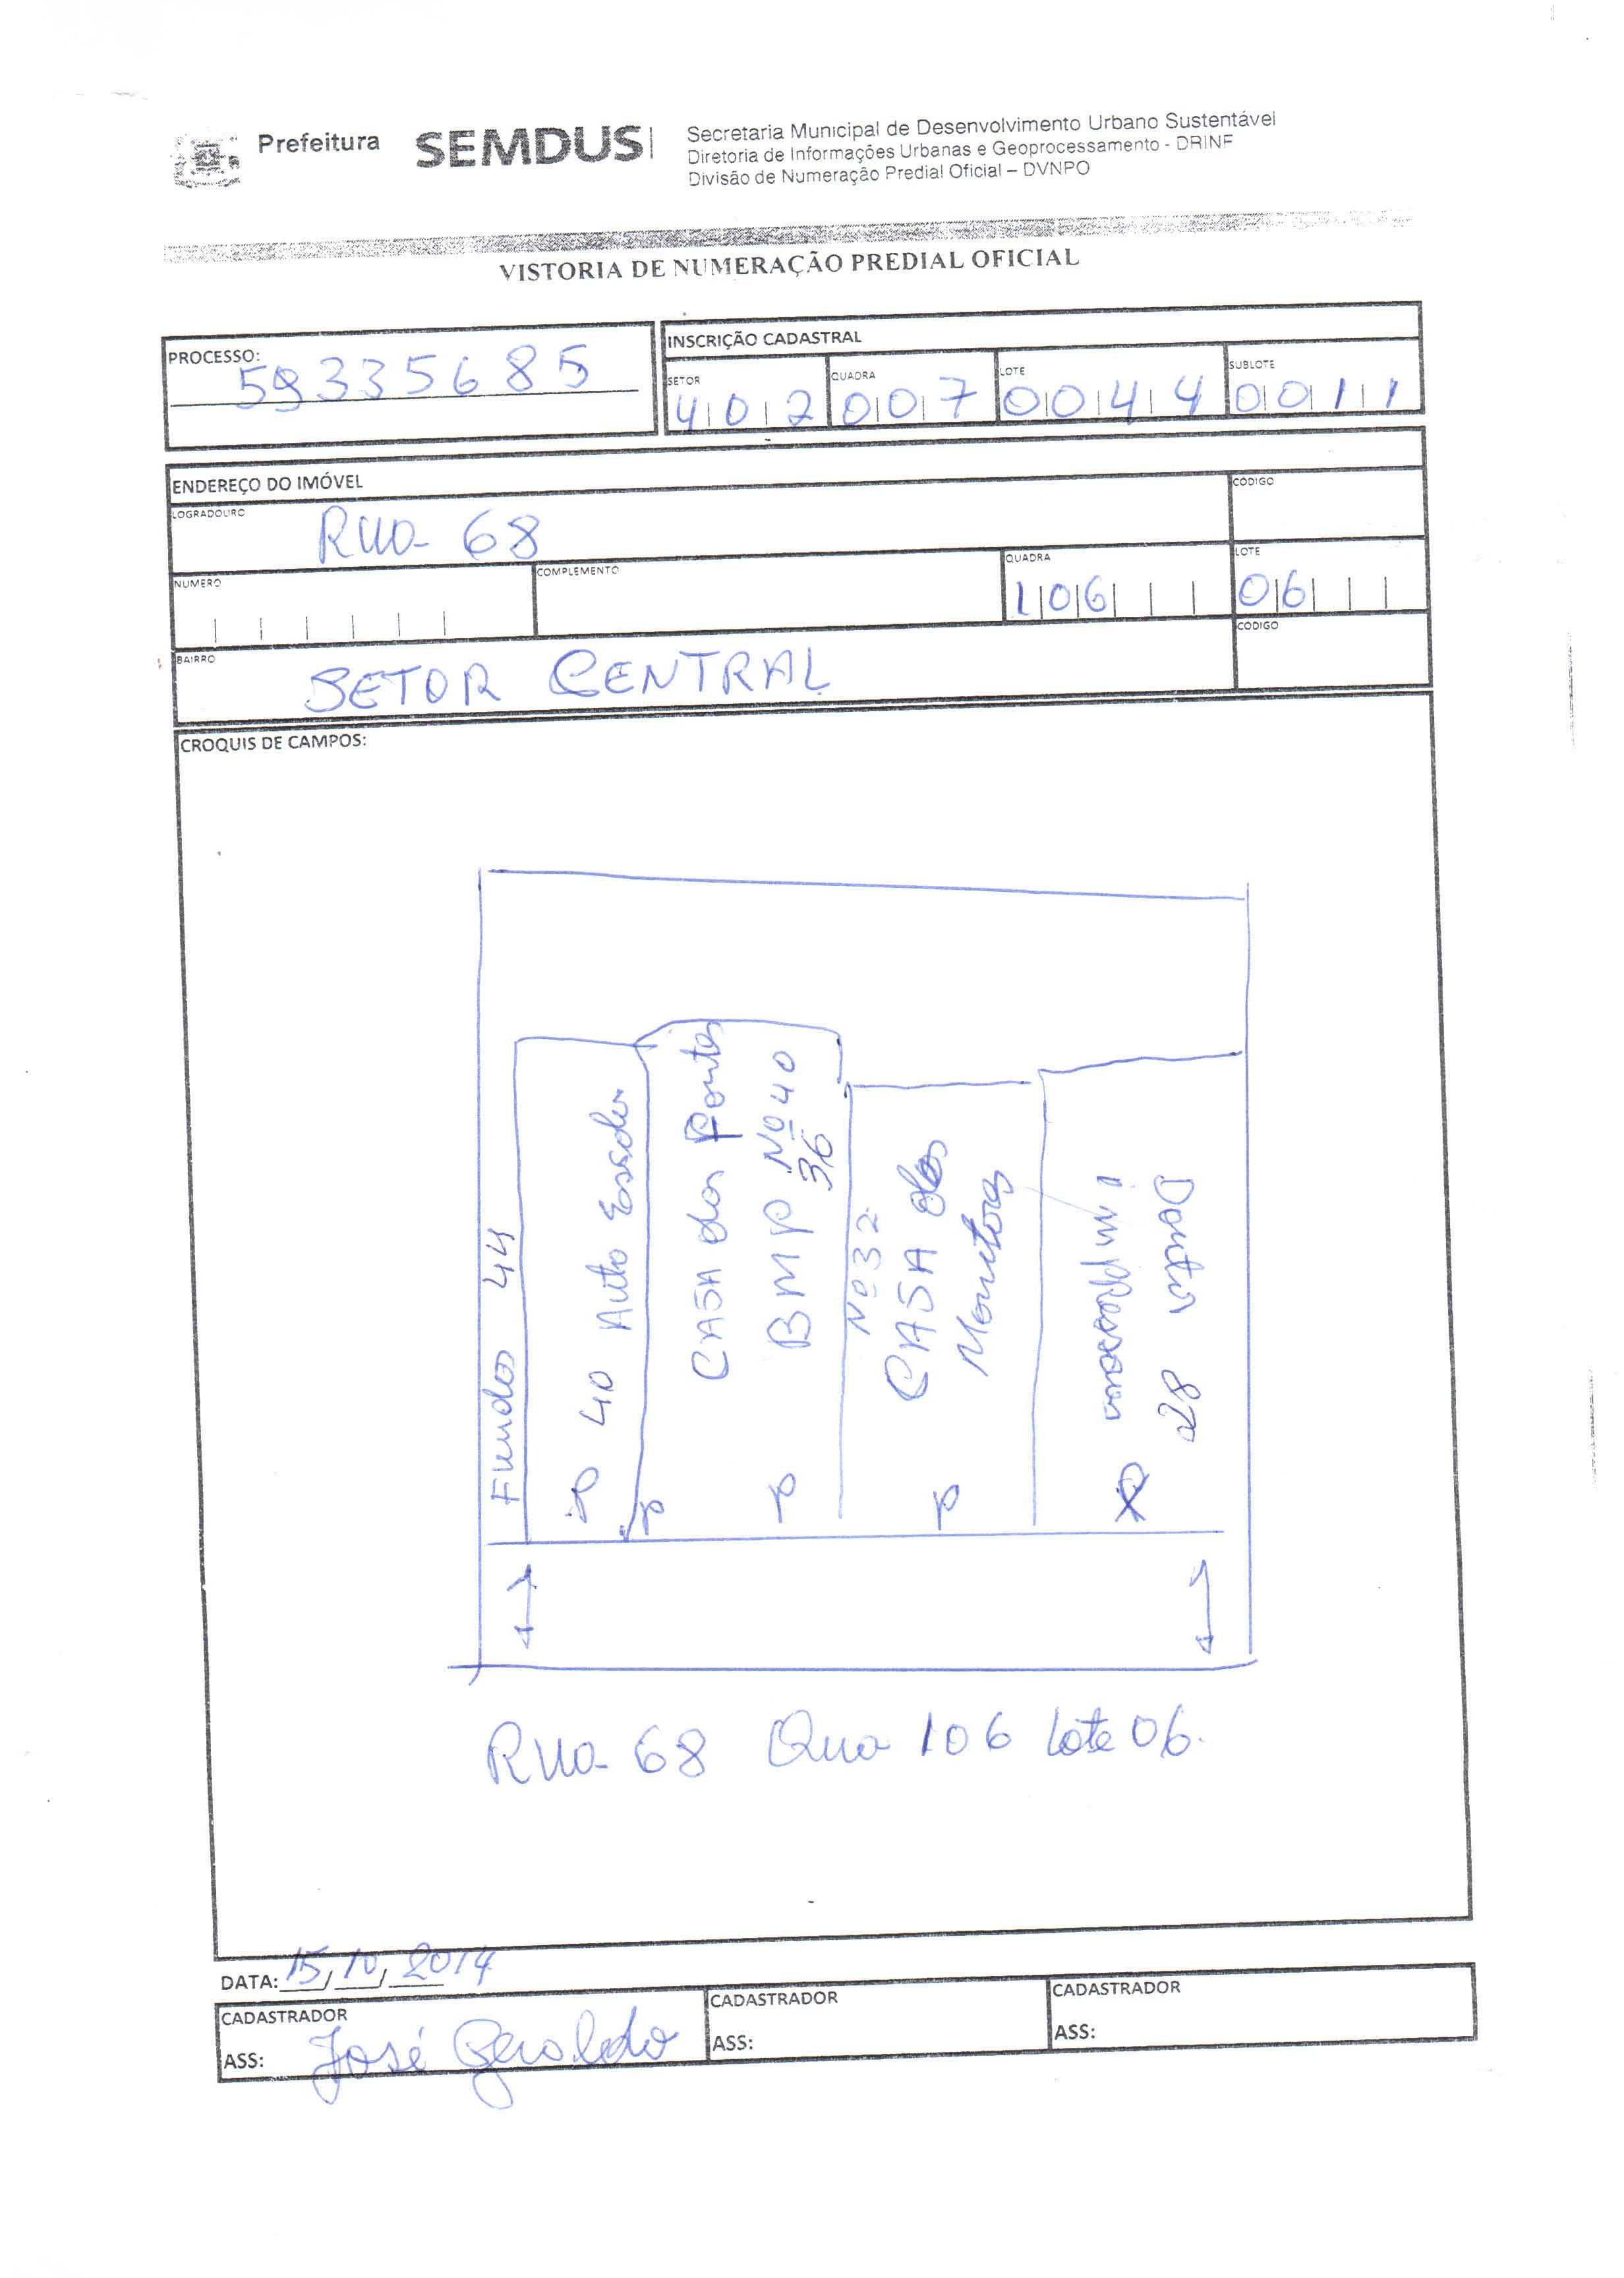 Prefeitura SEMDUS
Secretaria Municipal de Desenvolvimento Urbano Sustentável
Diretoria de Informações Urbanas e Geoprocessamento - DRINF
Divisão de Numeração Predial Oficial – DVNPO
VISTORIA DE NUMERAÇÃO PREDIAL OFICIAL
PROCESSO: 59335685
INSCRIÇÃO CADASTRAL
SETOR 402 QUADRA 007 LOTE 0044 SUBLOTE 0011
ENDEREÇO DO IMÓVEL
LOGRADOURO Rua 68 CÓDIGO
NUMERO COMPLEMENTO QUADRA 106 LOTE 06
BAIRRO SETOR CENTRAL CÓDIGO
CROQUIS DE CAMPOS:
Fundos 44
40 Auto Escola
CASA das
BMP Nº 40
36
Nº 32
CASA dos
28
Rua 68 Qua 106 Lote 06.
DATA: 15/10/2014
CADASTRADOR
ASS: José Geraldo
CADASTRADOR
ASS:
CADASTRADOR
ASS: